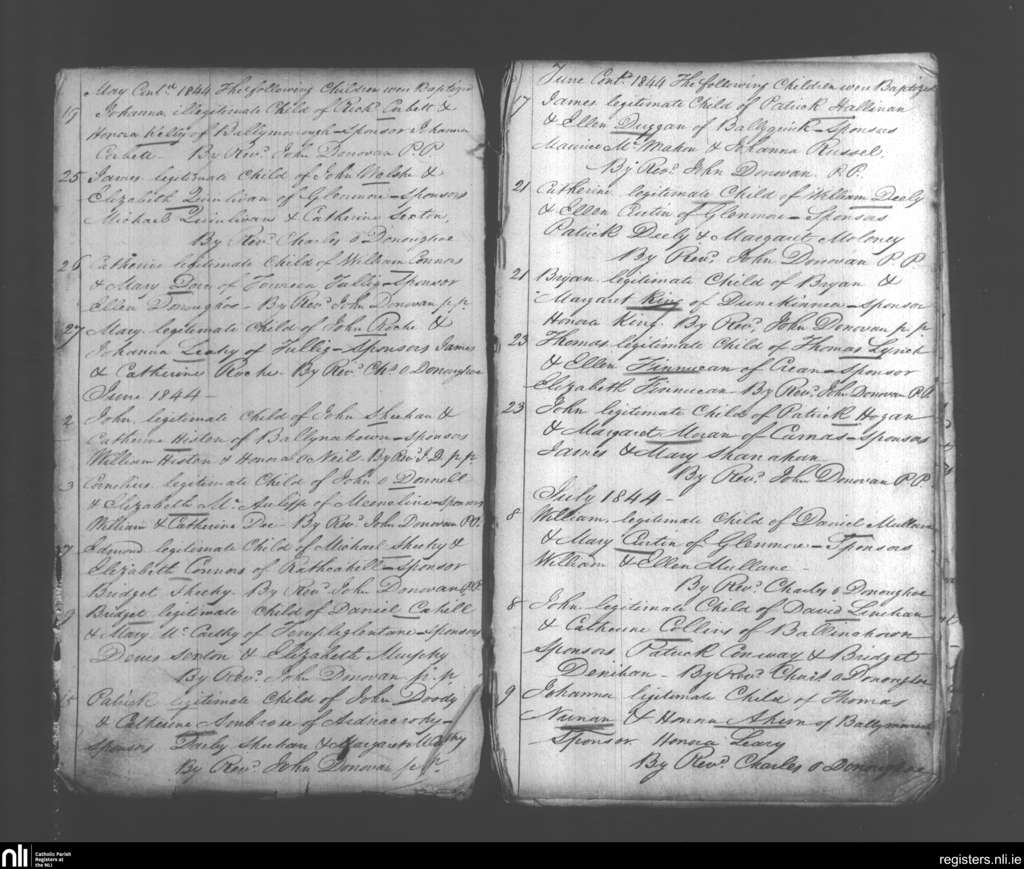 May Contd. 1844 The following Children were Baptized
19 Johanna illegitimate Child of Richd. Corbett &
Honora Kelly of Ballymorough - Sponsor Johanna
Corbett - By Revd. John Donovan P.P.
25 James legitimate Child of John Walshe &
Elizabeth Quinlivan of Glenmore - Sponsors
Michael Quinlivan & Catherine Sexton,
By Revd. Charles O Donoughoe
26 Catherine legitimate Child of William Connors
& Mary Dore of Fullig - Sponsor
Ellen Donoughoe - By Revd. John Donovan p.p.
27 Mary legitimate Child of John Roche &
Johanna Leahy of Tullig - Sponsors James
& Catherine Roche. By Revd. Chs. O Donoughoe
June 1844 -
2 John legitimate Child of John Sheehan &
Catherine Histon of Ballynakown - Sponsors
William Histon & Honora O Neil By Revd. J. D. p.p.
3 Cornelius legitimate Child of John O Donnell
& Elizabeth Mc. Auliffe of Meenoline - Sponsors
William & Catherine Doe - By Revd. John Donovan P.P.
7 Edmond legitimate Child of Michael Sheehy &
Elizabeth Connors of Rathcahill - Sponsor
Bridget Sheehy. By Revd. John Donovan P.P.
9 Bridget legitimate Child of Daniel Cahill
& Mary Mc. Carthy of Templeglentane - Sponsors
Denis Sexton & Elizabeth Murphy
By Revd. John Donovan p.p.
15 Patrick legitimate Child of John Doody
& Catherine Ambrose of
Sponsors Darby Sheehan & Margaret
By Revd. John Donovan p.p.
June Contd. 1844 The following Children were Baptized
17 James legitimate Child of Patrick Hallinan
& Ellen Duggan of Ballyquirk - Sponsors
Maurice Mc. Mahon & Johanna Russel,
By Revd. John Donovan P.P.
21 Catherine legitimate Child of William Deely
& Ellen Curtin of Glenmore - Sponsors
Patrick Deely & Margaret Moloney
By Revd. John Donovan P.P.
21 Bryan legitimate Child of Bryan &
Margaret King of - Sponsor
Honora King. By Revd. John Donovan p.p.
23 Thomas legitimate Child of Thomas Lynch
& Ellen Finnucan of Crean - Sponsor
Elizabeth Finnucan By Revd. John Donovan P.P.
23 John legitimate Child of Patrick Hogan
& Margaret Moran of Camas - Sponsors
James & Mary Shanahan
By Revd. John Donovan P.P.
July 1844 -
8 William legitimate Child of Daniel Mullane
& Mary Curtin of Glenmore - Sponsors
William & Ellen Mullane -
By Revd. Charles O Donoughoe
8 John legitimate Child of David Linehan
& Catherine Collins of Ballinakown
Sponsors Patrick Conway & Bridget
Denihan - By Revd. Charls O Donoughoe
9 Johanna legitimate Child of Thomas
Nunan & Honna Ahern of
Sponsor Honora Leary
By Revd. Charles O Donoughoe
nli Catholic Parish
Registers at
the NLI
registers.nli.ie